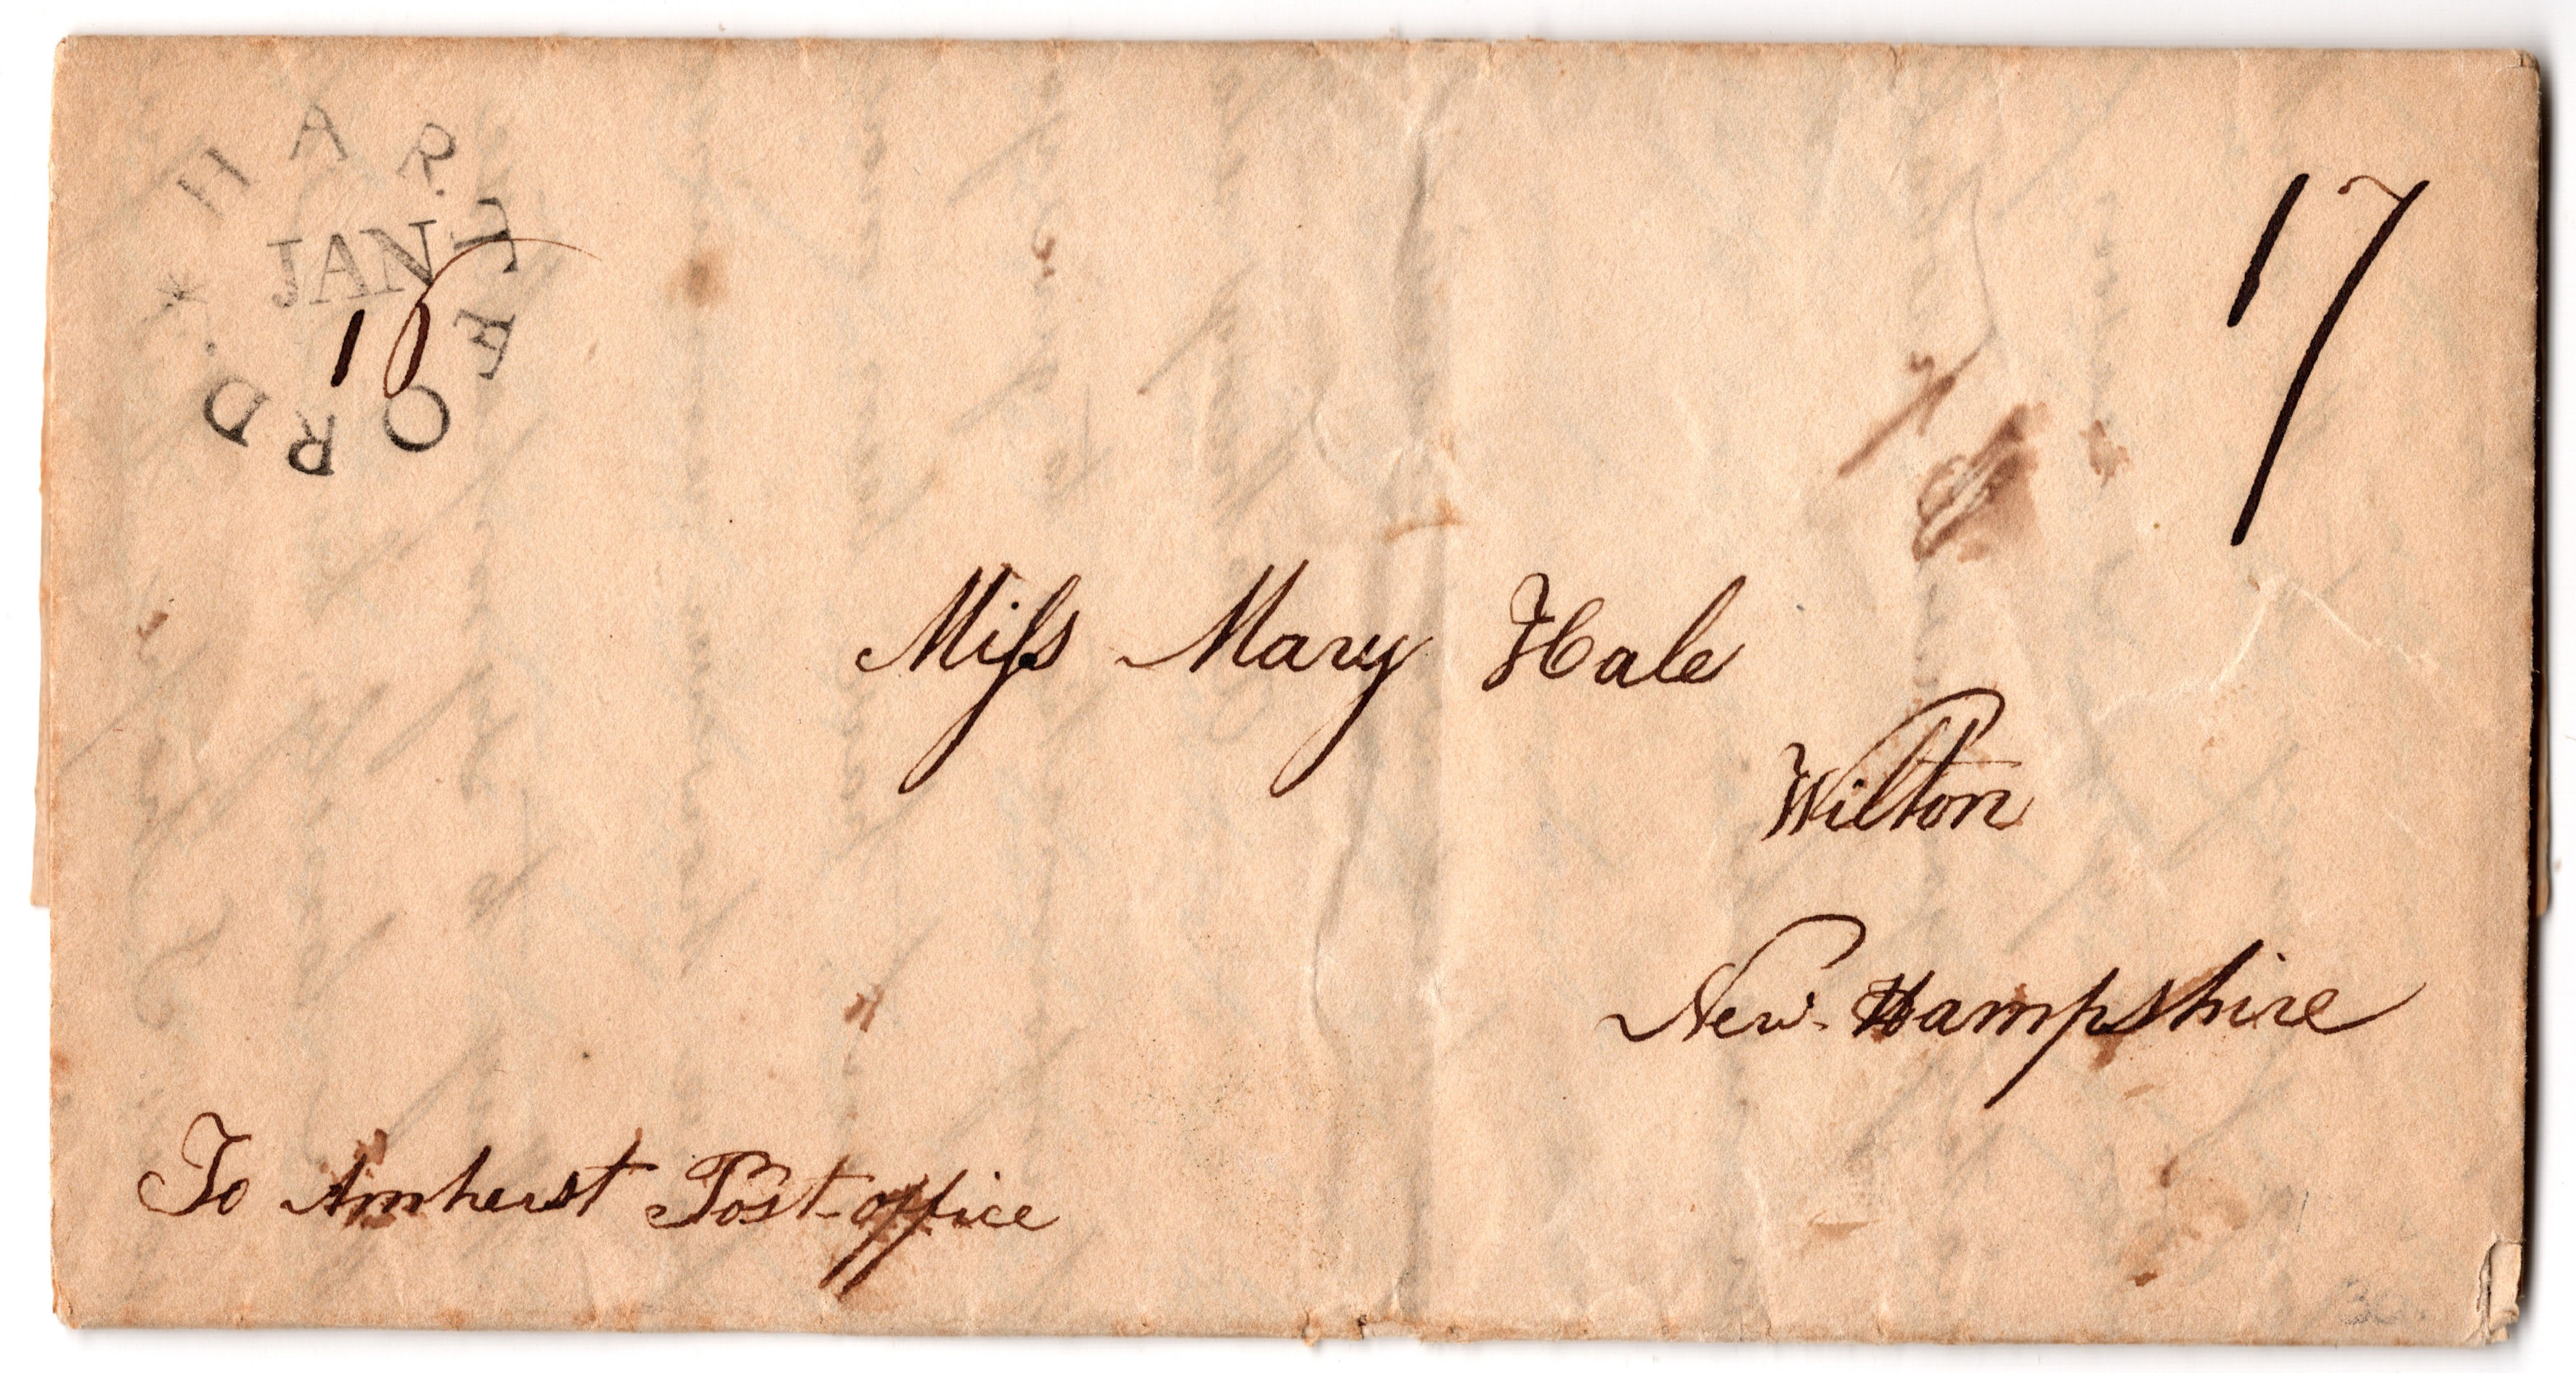 HARTFORD.*
JAN
16
17
Miſs Mary Hale
Wilton
New-Hampshire
To Amherst Post-office